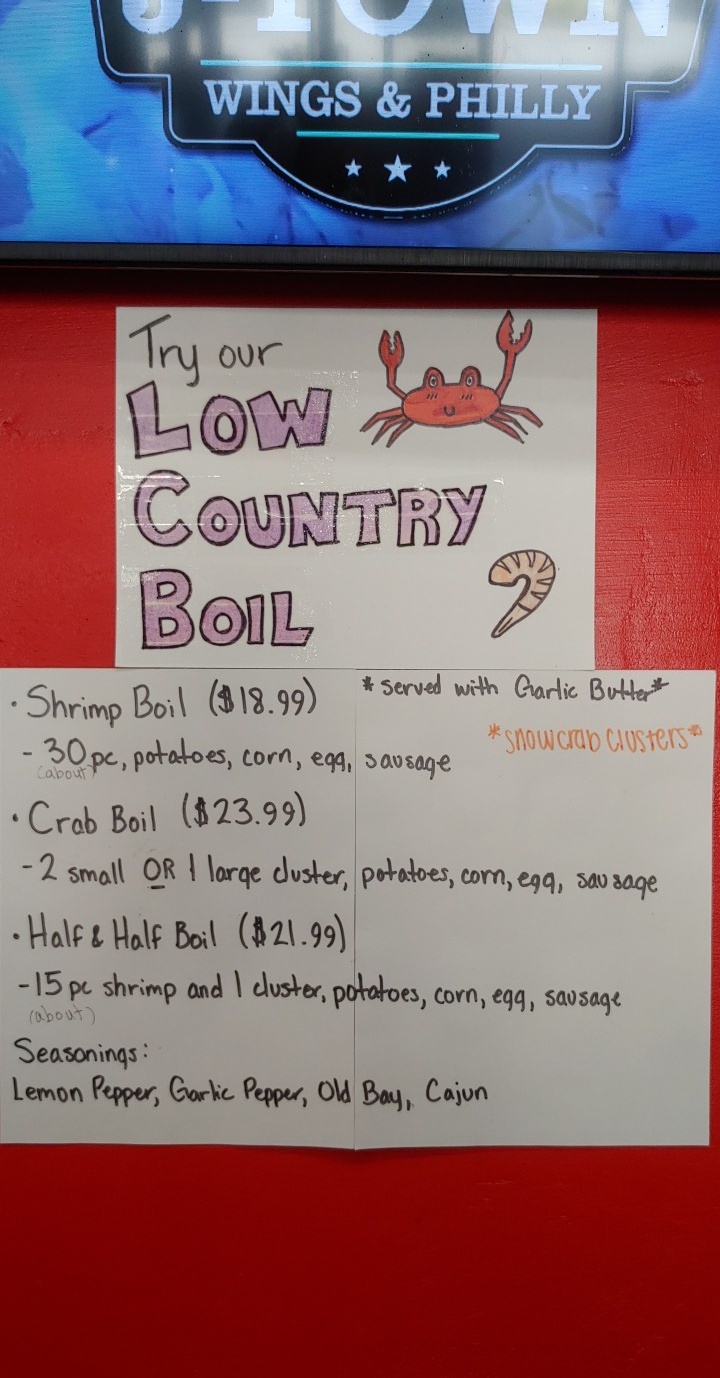 J-TOWN
WINGS & PHILLY
Try our
LOW
COUNTRY
BOIL
• Shrimp Boil ($18.99)
*served with Garlic Butter*
*snowcrab clusters*
- 30 pc, potatoes, corn, egg, sausage
(about)
• Crab Boil ($23.99)
- 2 small OR 1 large cluster, potatoes, corn, egg, sausage
• Half & Half Boil ($21.99)
- 15 pc shrimp and 1 cluster, potatoes, corn, egg, sausage
(about)
Seasonings:
Lemon Pepper, Garlic Pepper, Old Bay, Cajun